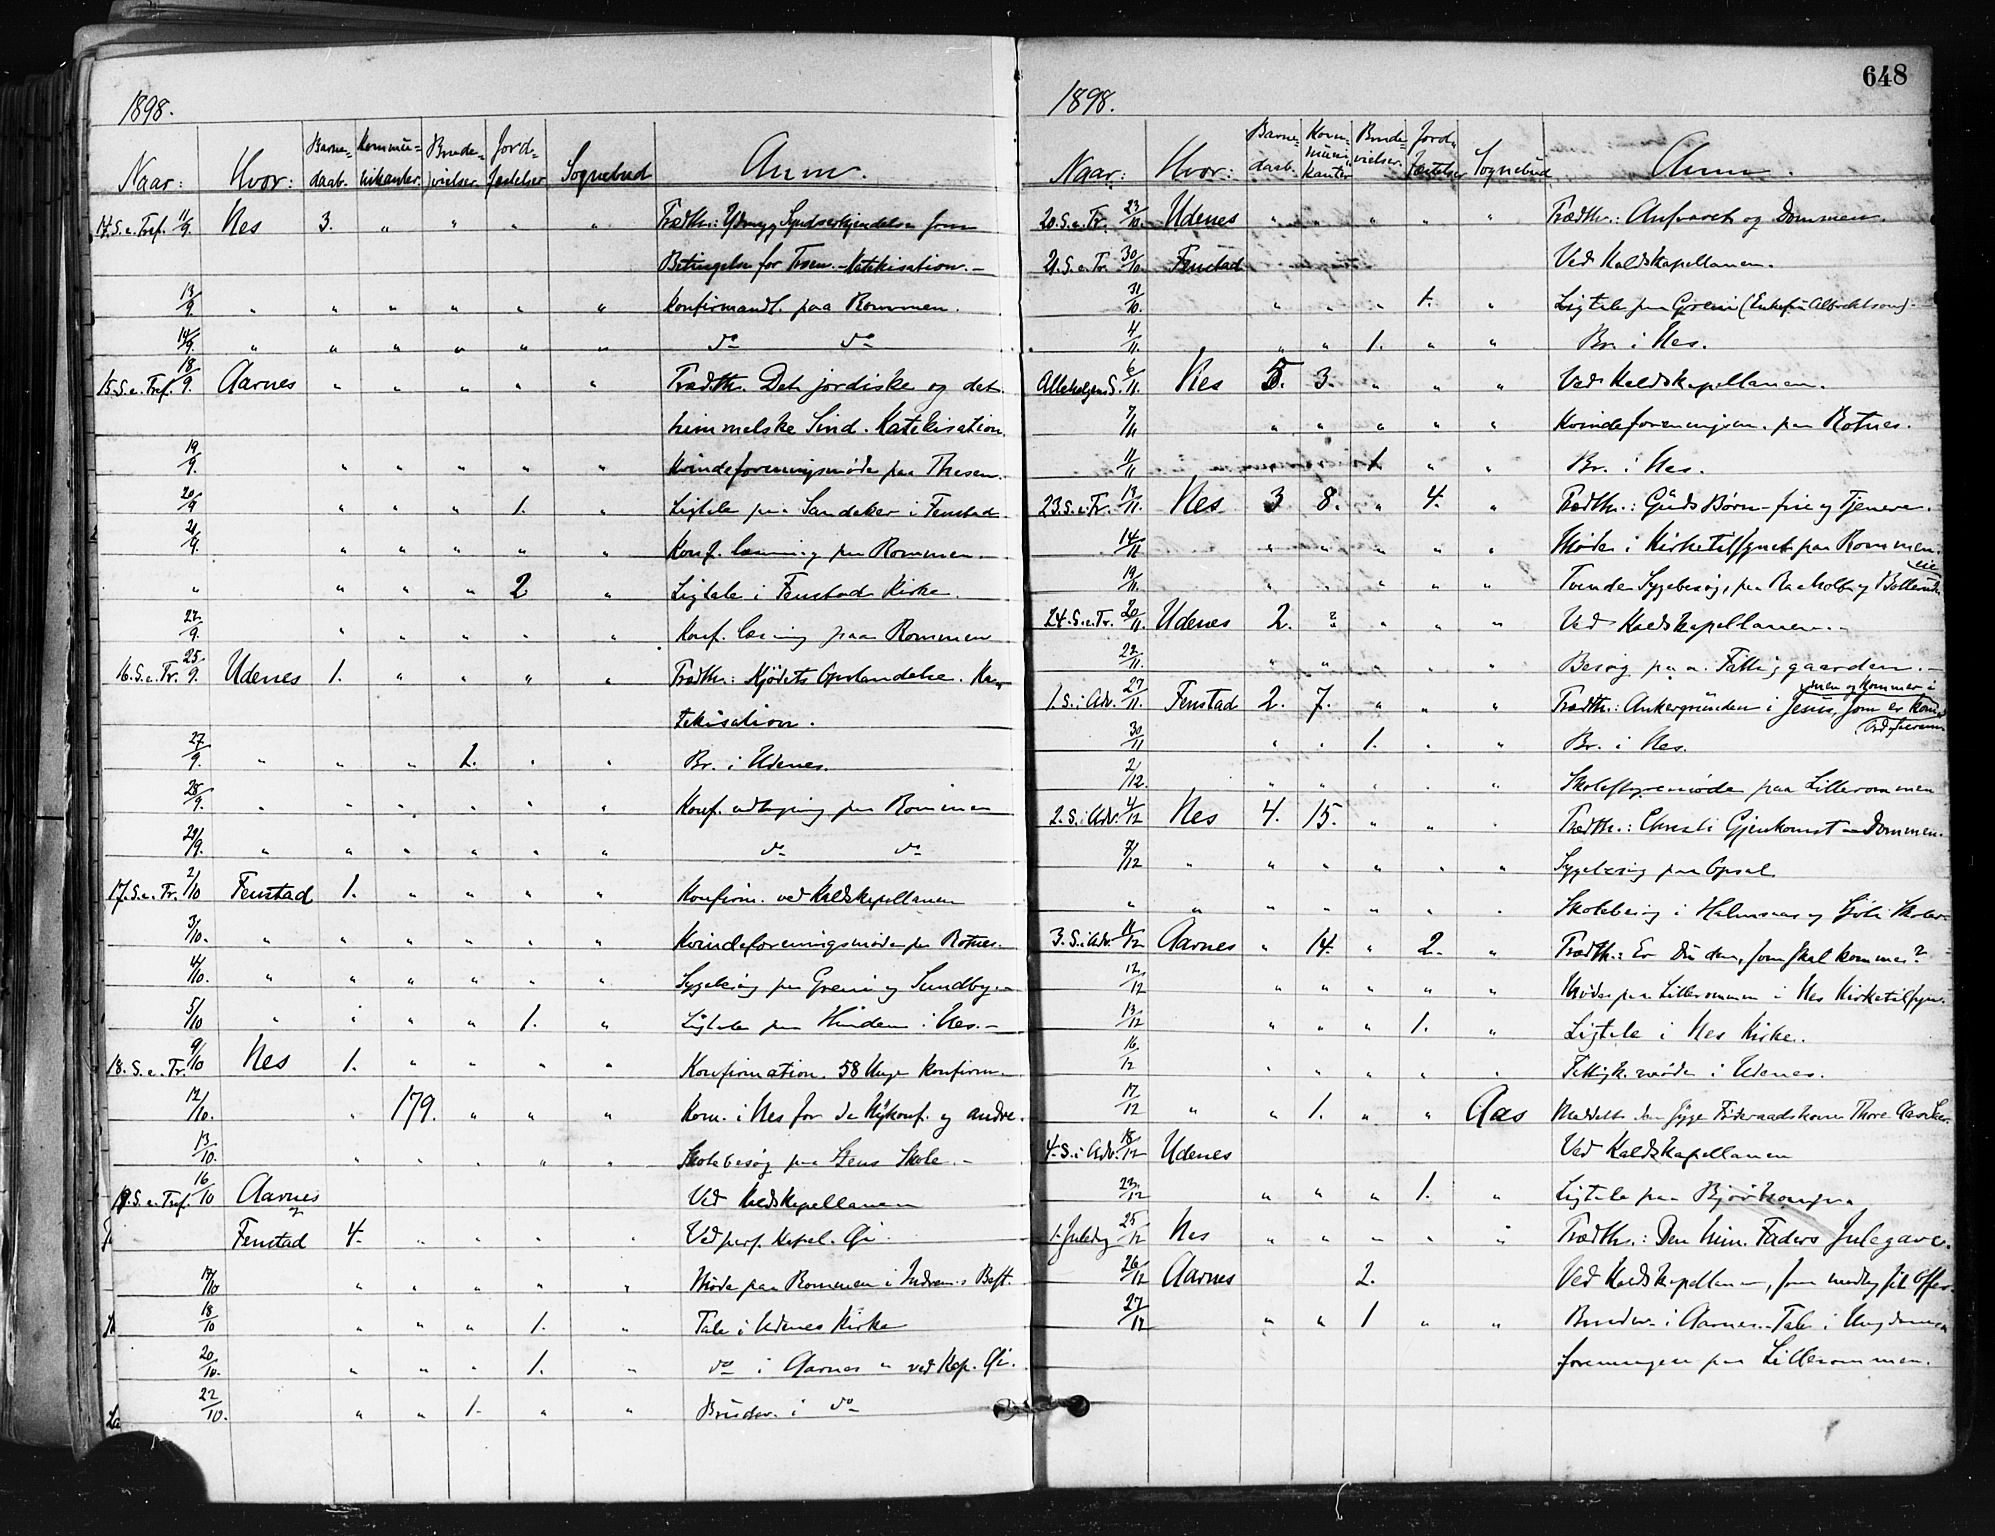 1898.
Naar: Hvor: Barne- daab. Kommu- nikanter. Brude- vielser. Jord- fæstelser Sognebud Anm.
14. S. e. Tref. 11/9. Nes 3. " " " " Prædth.: Ydmyg Syndserkjendelse som
Betingelse for Troen. - Katekisation. -
13/9 " " " " " " Konfirmandl. paa Rommen.
14/9. " " " " " " do do
15 S. e. Tref. 18/9. Aarnes " " " " " Prædth. Det jordiske og det
himmelske Sind. Katekisation.
19/9. " " " " " Kvindeforeningsmøde paa Thesen.
20/9 " " " 1. " Ligtale paa Sandaker i Fenstad
21/9. " " " " " Konf. læsning paa Rommen.
" " " " 2 " Ligtale i Fenstad Kirke.
22/9. " " " " " Konf. læsning paa Rommen
16. S. e. Tr. 25/9. Udenes 1. " " " " Prædth.: Kjødets Opstandelse. Ka-
tekisation.
27/9. " " " 1. " " Br. i Udenes.
28/9. " " " " " " Konf. paa Rommen
29/9. " " " " " " do do
17. S. e. Tr. 2/10 Fenstad 1. " " " " Konfirm. ved Kaldskapellanen
3/10. " " " " " " Kvindeforeningsmøde paa Rotnes.
4/10. " " " " " " Sygebesøg paa Greni og Sundby. -
5/10 " " " " 1. " Ligtale paa Hinden i Nes. -
18. S. e. Tr. 9/10 Nes 1. " " " " Konfirmation. 58 Unge konfirm.
12/10. " 179. " " " Kom. i Nes for de Nykonf. og andre.
13/10. " " " " " Skolebesøg paa Skole. -
19. S. e. Tref. 16/10 Aarnes Ved Kaldskapellanen
Fenstad 4. " " " " Ved pers. Kapel. Gi.
17/10 " " " " " Møde paa Rommen i
18/10 " " " 1. " Tale i Udenes Kirke
20/10. " " " 1. " do i Aarnes " ved Kap. Gi.
22/10. " " 1. " " Brudev. i do
648
1898.
Naar: Hvor: Barne- daab. Kom- muni- kanter Brude- vielser. Jord- fæstelser Sognebud Anm.
20. S. e. Tr. 23/10. Udenes " " " " " Prædth.: Ansvaret og Dommen.
21. S. e. Tr. 30/10. Fenstad Ved Kaldskapellanen.
31/10. " " " 1. " Ligtale paa Greni (Enkefru Albrechtsen). -
4/11. " " 1. " " Br. i Nes.
Allehelgens S. 6/11. Nes 5. 3. " " " Ved Kaldskapellanen.
7/11 " " " " " Kvindeforeningsm. paa Rotnes.
11/11 1 " " Br. i Nes.
23. S. e. Tr. 13/11. Nes 3 8. " 4. " Prædth.: Guds Børn - frie og Tjenere.
14/11 " " " " " Møde i Kirketilsynet paa Rommen.
19/11. " " " " " Tvende Sygebesøg, paa Raaholt og eie
24. S. e. Tr. 20/11. Udenes 2. " " " " Ved Kaldskapellanen. -
22/11. " " " " " Besøg paa Fattiggaarden. -
1. S. i Adv. 27/11. Fenstad 2. 7. " " " Prædth.: Ankergrunden i Jesus, som er kom-
men og kommer i
30/11 " " 1. " " Br. i Nes.
2/12. " " " " " Skolestyremøde paa Lillerommen
2. S. i Adv. 4/12 Nes 4. 15. " " " Prædth.: Christi Gjenkomst - Dommen.
7/12 " " " " " " Sygebesøg paa Opsal.
" " " " " " " Skolebesøg i Halmsaas og Skoler
3. S. i Adv. 11/12 Aarnes " 14. " 2. " Prædth.: Er Du den, som skal komme?
12/12 " " " " " Møde paa Lillerommen i Nes Kirketilsyn.
13/12 " " " 1. " Ligtale i Nes Kirke.
16/12 " " " " " Fattigk. møde i Udenes.
17/12 " " 1. " " Aas Meddelt den syge Føderaadskone Thore
4. S. i Adv. 18/12 Udenes Ved Kaldskapellanen
23/12 " " " 1. " Ligtale paa
1. Juledag 25/12 Nes " " " " " Prædth.: Den him. Faders Julegave.
26/12 Aarnes 2. Ved Kaldskapellanen, som modtog sit Offer.
27/12 " " 1 " " Brudev. i Aarnes. - Tale i Ungdoms-
foreningen paa Lillerommen.